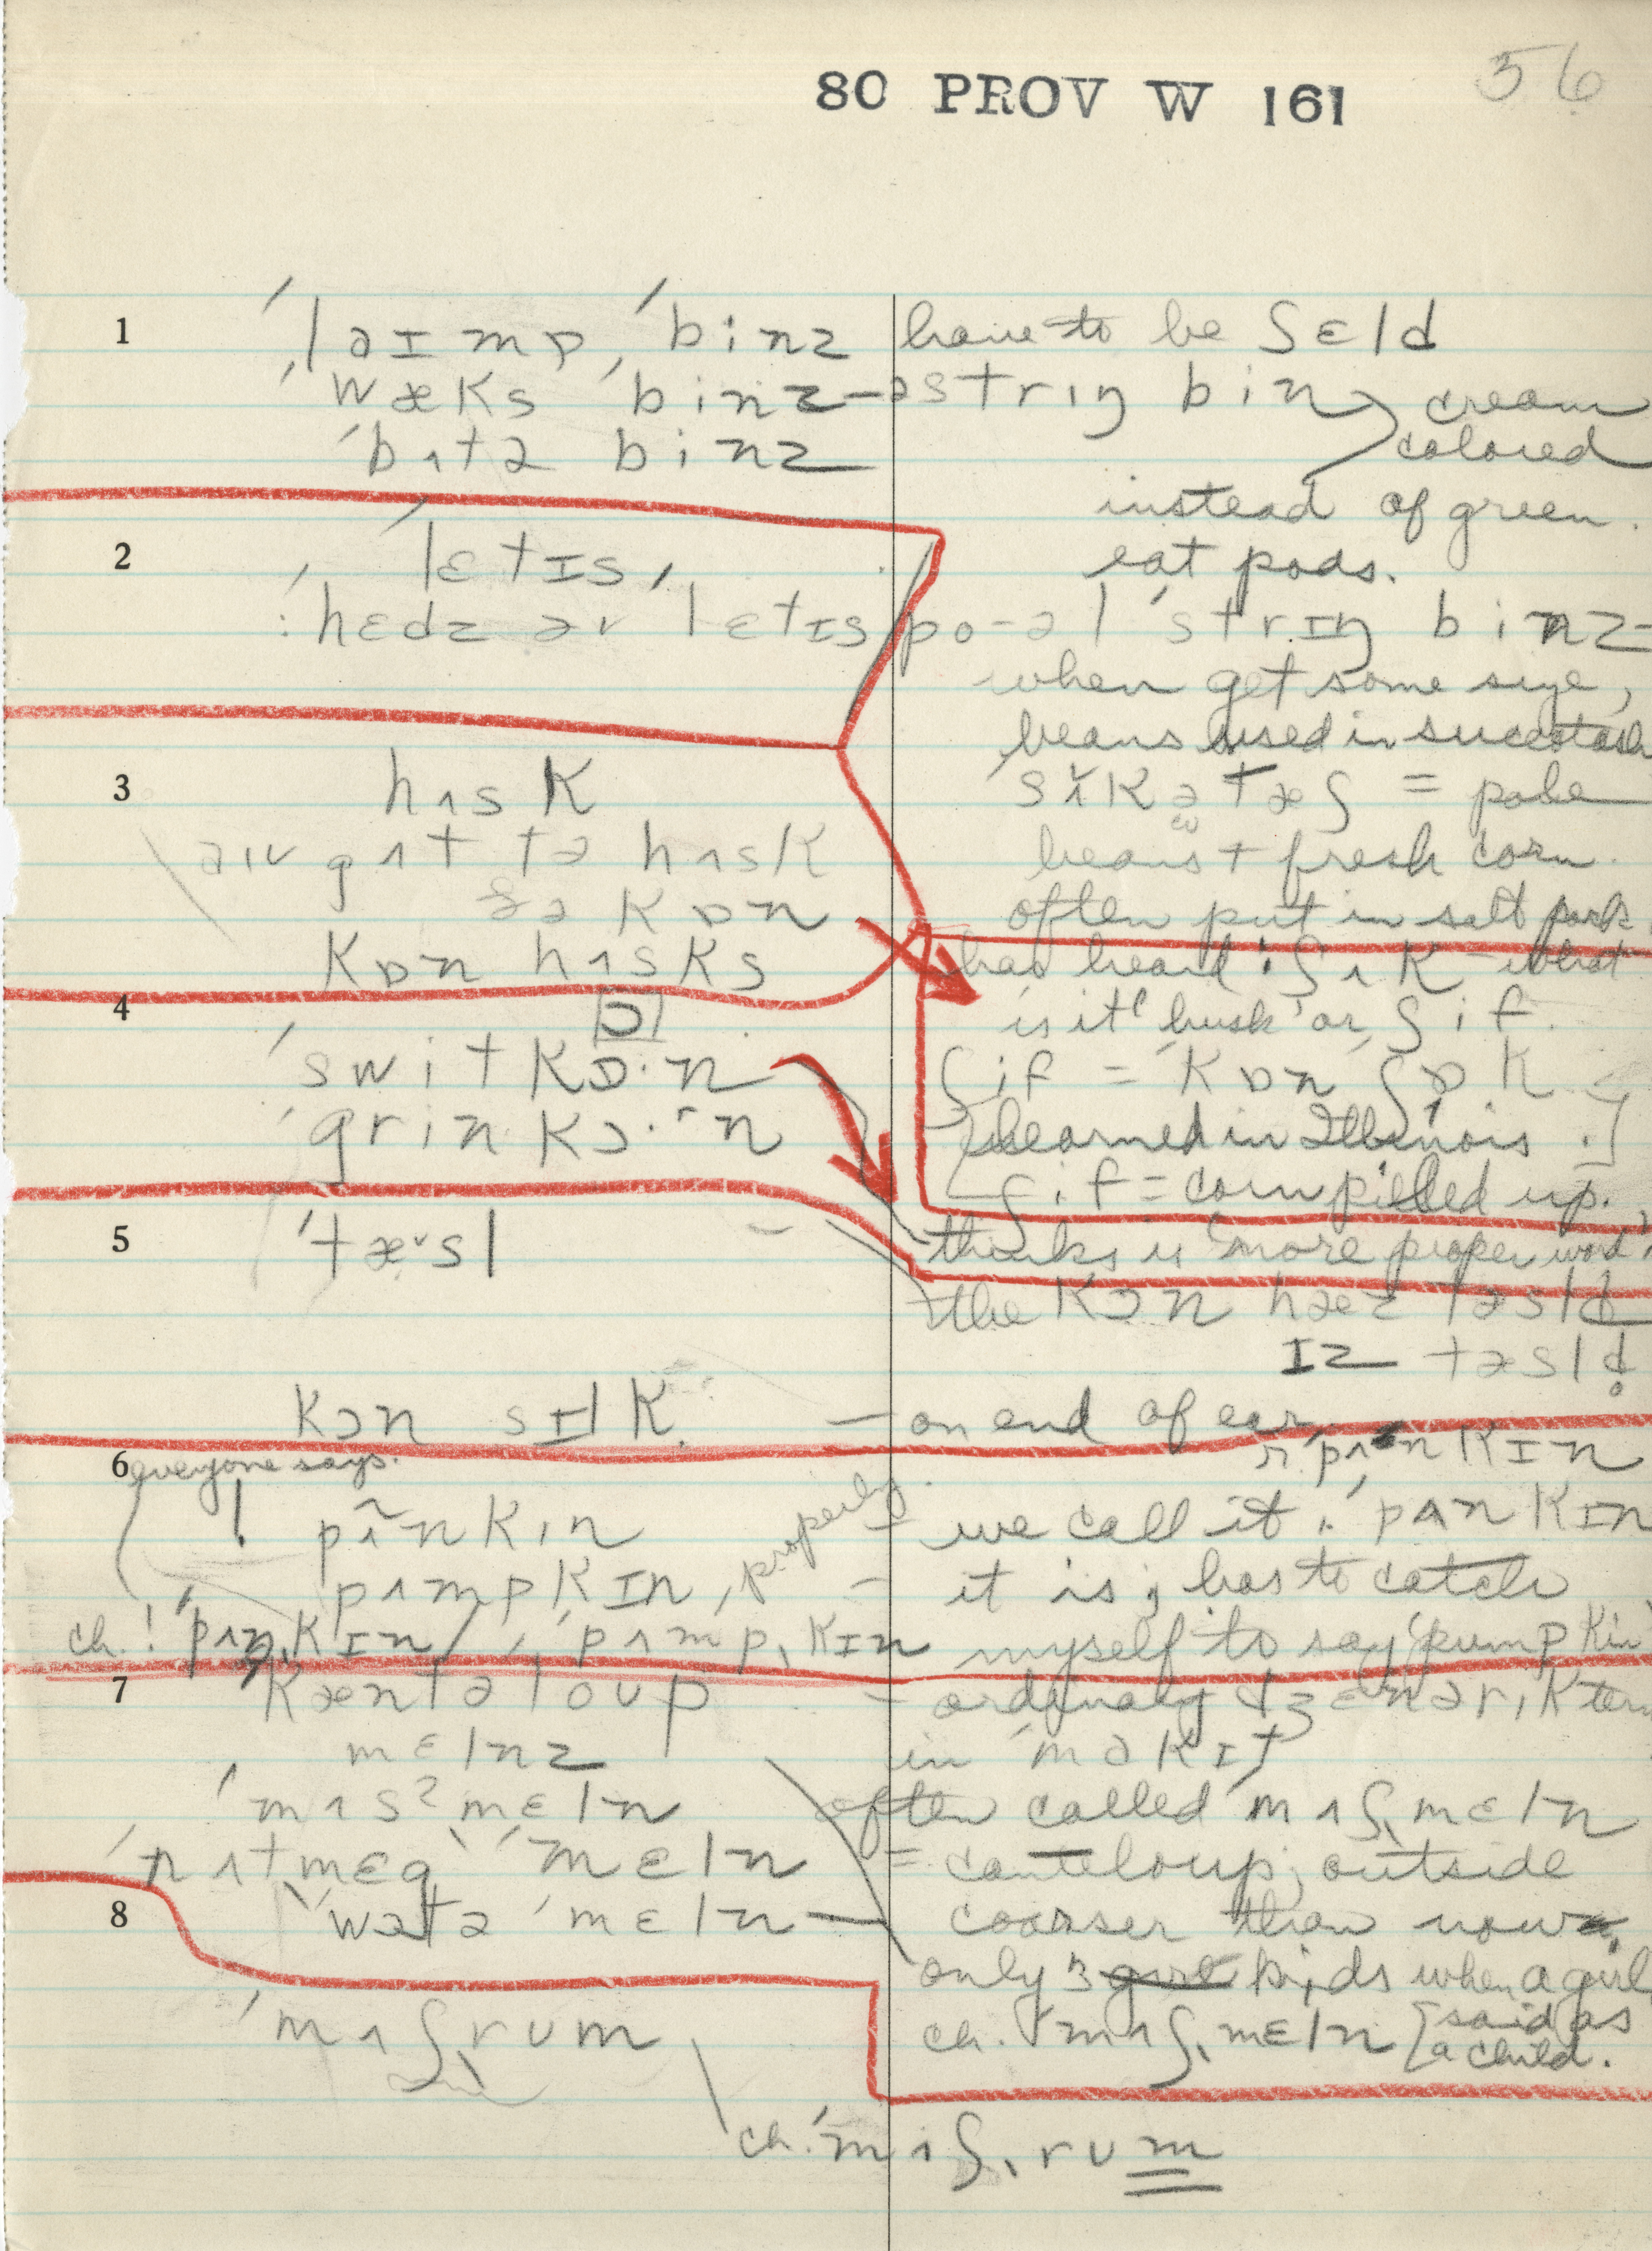 80 PROV W 161
56
1 ˈlaɪmə ˈbinz have to be ʃɛld
ˈwæks ˈbinz – striŋ bin cream
ˈbʌtə binz colored
instead of green.
2 ˈlɛtɪs, eat pods.
ˈhɛdz əv ˈlɛtɪs
po-əl ˈstrɪŋ binz –
when get some size,
beans used in succotash
3 hʌsk
sʌkətæʃ = pole
aɪv gʌt tə hʌsk beans + fresh corn.
ðə kɒn often put in salt pork
kɒn hʌsks has heard: ʃʌk – what
4 is it 'husk' or ʃif.
ˈswitkɒ·n ʃif = ˈkɒn ʃɒk
ˈgrinkɔ·n learned in Illinois.]
ʃif = corn piled up.
5 ˈtæsl – thinks is "more proper word"
the kɔn hæz tasld
ɪz tasld
kɔn sɪlk – on end of ear
6 everyone says. r. ˈpʌnkɪn
! pʌ̃nkin – we call it: ˈpʌnkɪn
pʌmpkɪn, properly – it is; has to catch
ch.! ˈpʌŋ,kɪn / ˈpʌmp,kɪn myself to say 'pumpkin'
7 kæntəloup – ordinary dʒɛnərik term
mɛlnz in ˈmakɪt
ˈmʌsˀmɛln often called ˈmʌʃ,mɛln
ˈnʌtmɛg ˈmɛln = canteloup; outside
8 ˈwatə ˈmɛln – coarser than now.
only 3 kinds when a girl
ˈmʌʃ,rum ch. ˈmʌʃ,mɛln [said as
a child.
ch. ˈmʌʃ,rum